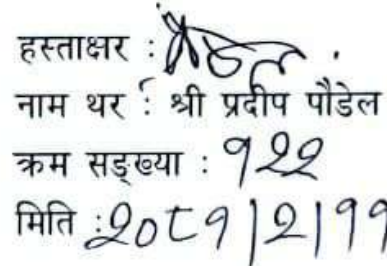 हस्ताक्षर :
नाम थर : श्री प्रदीप पौडेल
क्रम सङ्ख्या : १२२
मिति : २०८१।२।११